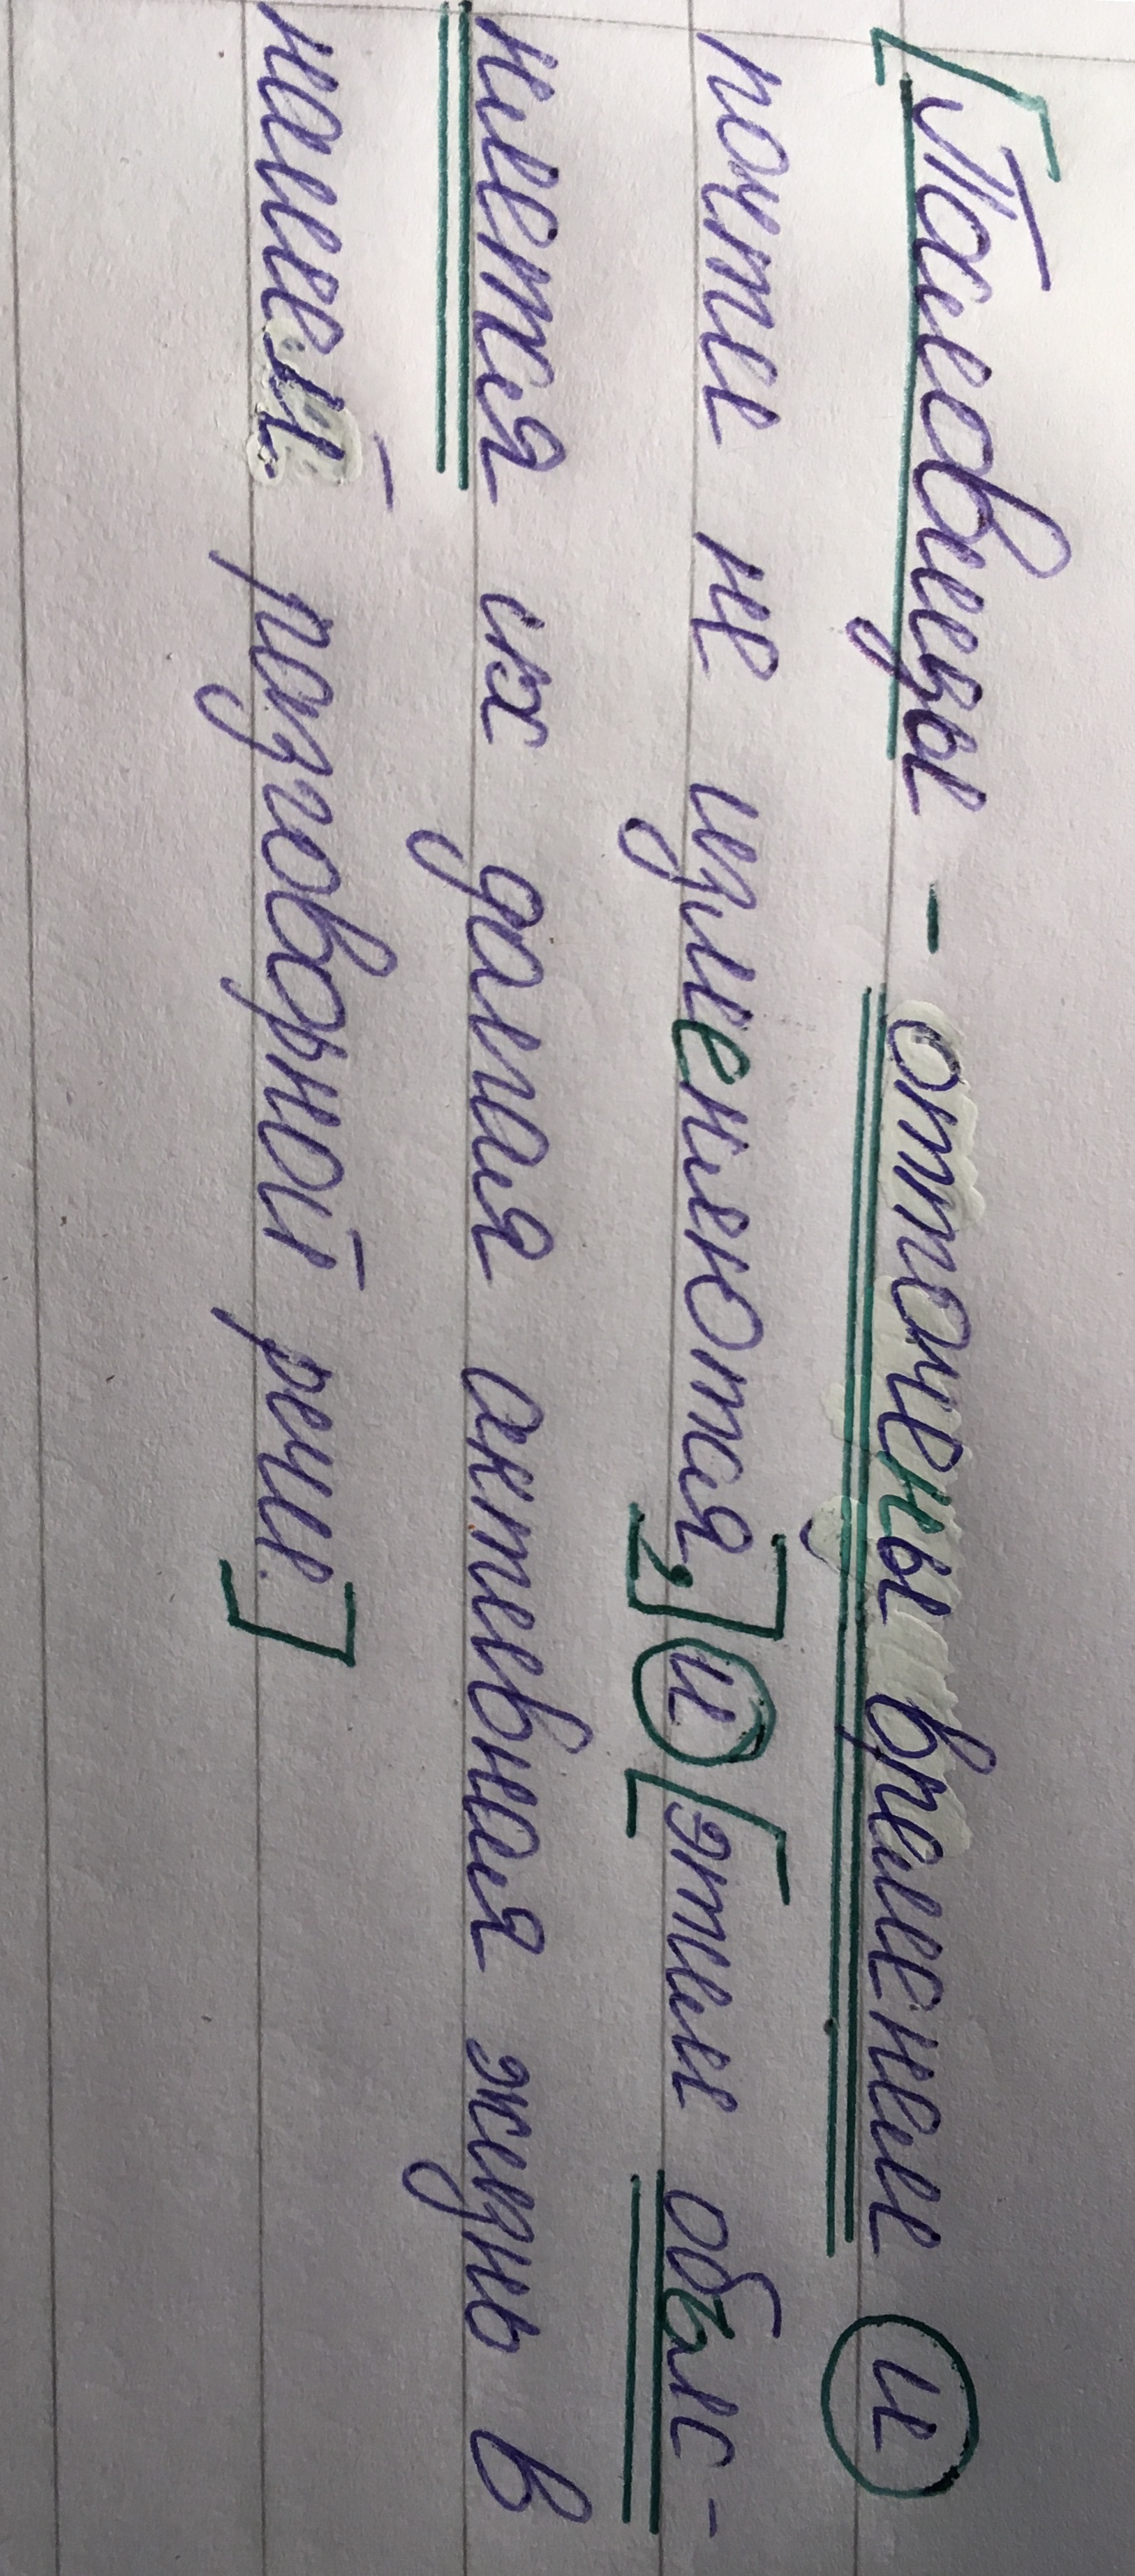 [Пословицы - отточены временем и
почти не изменяются,] и [этим объяс-
няется их долгая активная жизнь в
нашей разговорной речи.]